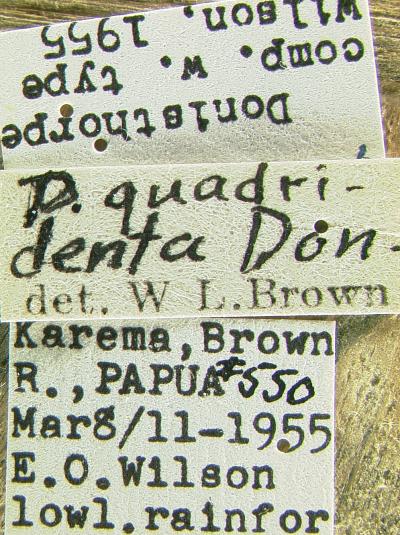 Donisthorpe
comp. w. type
Wilson. 1955
D. quadri-
denta Don.
det. W L. Brown
Karema, Brown
R., PAPUA #550
Mar8/11-1955
E.O.Wilson
lowl.rainfor